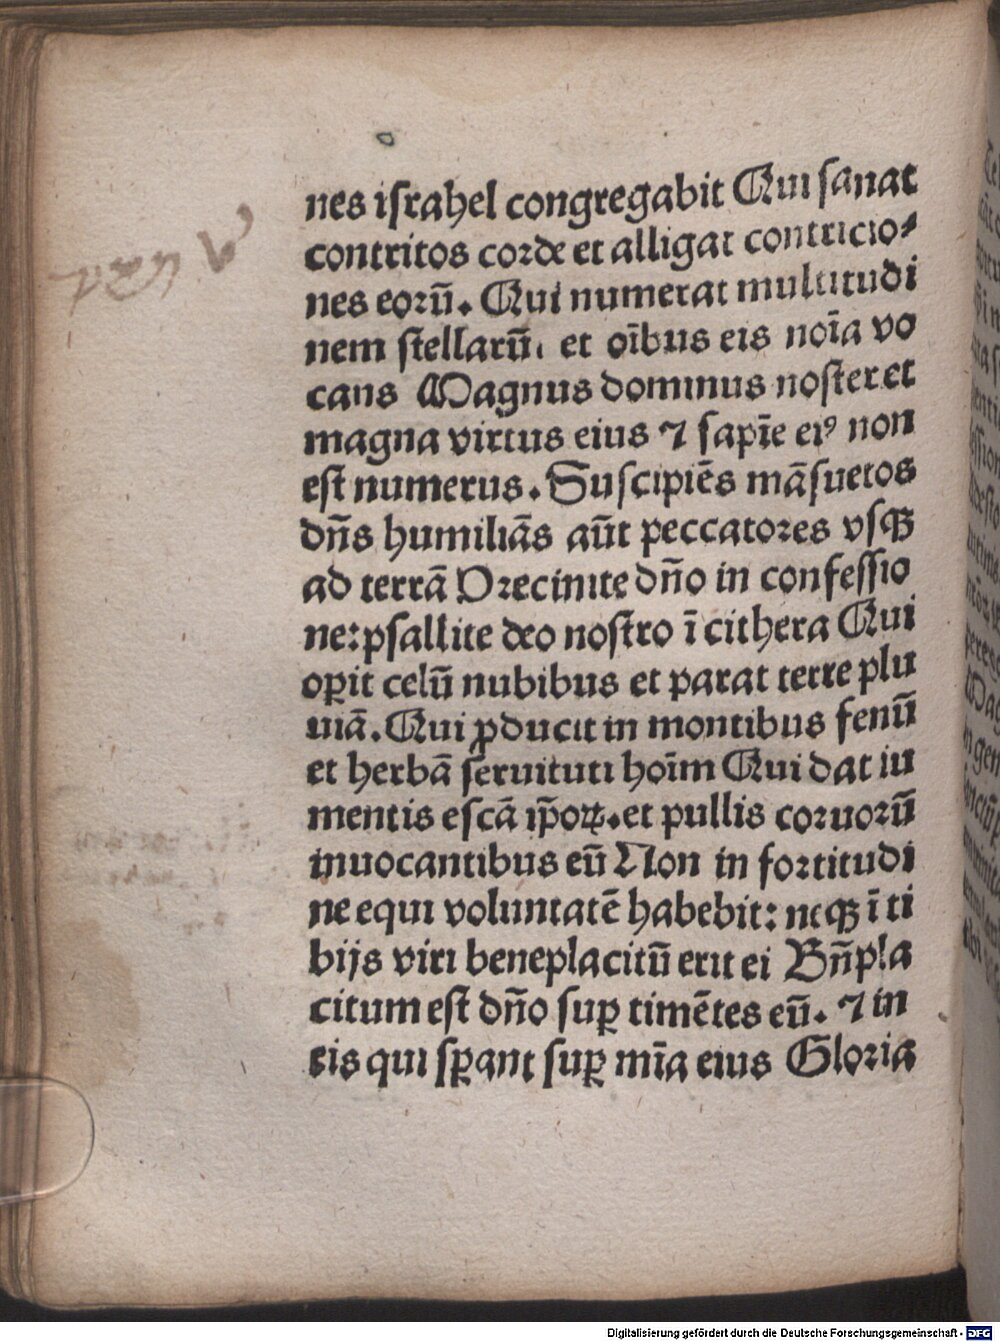 nes iſrahel congregabit Qui ſanat
contritos corde et alligat contricio⸗
nes eorū. Qui numerat multitudi
nem ſtellarū. et oībus eis noīa vo
cans Magnus dominus noſter et
magna virtus eius ⁊ ſapīe eiꝰ non
eſt numerus. Suſcipiēs māſuetos
dn̄s humiliās aūt peccatores vſqꝫ
ad terrā Precinite dn̄o in confeſſio
ne: pſallite deo noſtro ī cithera Qui
oꝑit celū nubibus et parat terre plu
uiā. Qui ꝓducit in montibus fenū
et herbā ſeruituti hoīm Qui dat iu
mentis eſcā ip̄oꝝ. et pullis coruorū
inuocantibus eū Non in fortitudi
ne equi voluntatē habebit: neqꝫ ī ti
bijs viri beneplacitū erit ei Bn̄pla
citum eſt dn̄o ſuꝑ timētes eū. ⁊ in
eis qui ſꝑant ſuꝑ mīa eius Gloria
Digitalisierung gefördert durch die Deutsche Forschungsgemeinschaft - DFG